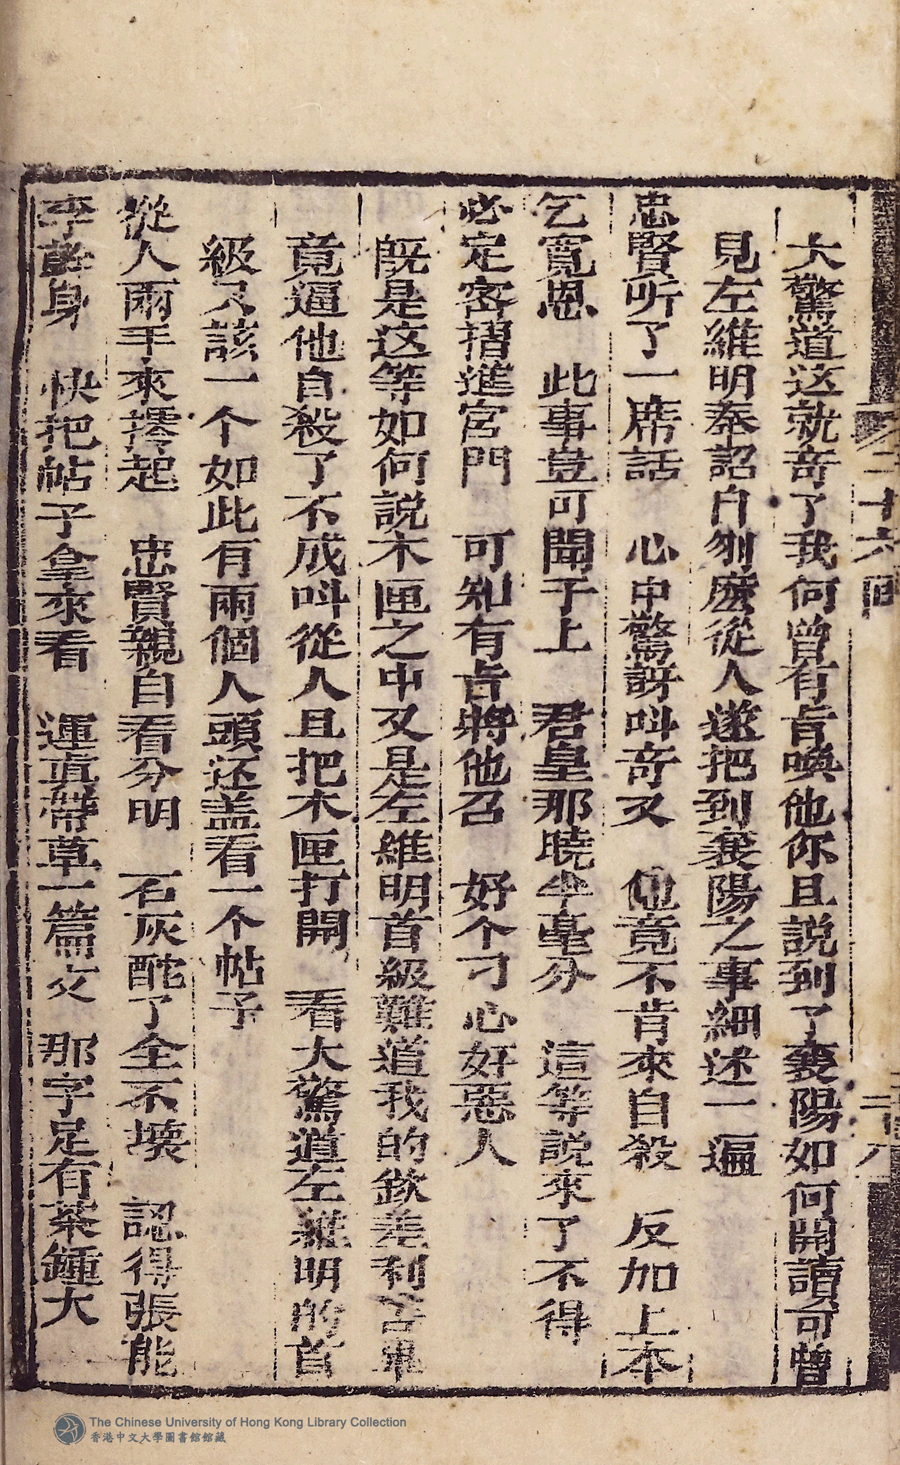 二十六回
大驚道这就奇了我何曾有旨喚他你且説到了襄陽如何開讀可曾
見左維明奉詔自刎麽從人遂把到襄陽之事細述一遍
忠賢听了一席話　心中驚訝呌奇又　他竟不肯來自殺　反加上本
乞寬恩　此事豈可聞于上　君皇那曉半毫分　這等説來了不得
必定密摺進宮門　可知有旨將他召　好个刁心奸惡人
既是这等如何説木匣之中又是左維明首級難道我的欽差利害
竟逼他自殺了不成呌從人且把木匣打開　看大驚道左維明的首
級只該一个如此有兩個人頭还盖看一个帖子
從人兩手來撏起　忠賢親自看分明　石灰酡了全不壞　認得張能
李身　快把帖子拿來看　運真帶草一篇文　那字足有茶鍾大
The Chinese University of Hong Kong Library Collection
香港中文大學圖書館館藏